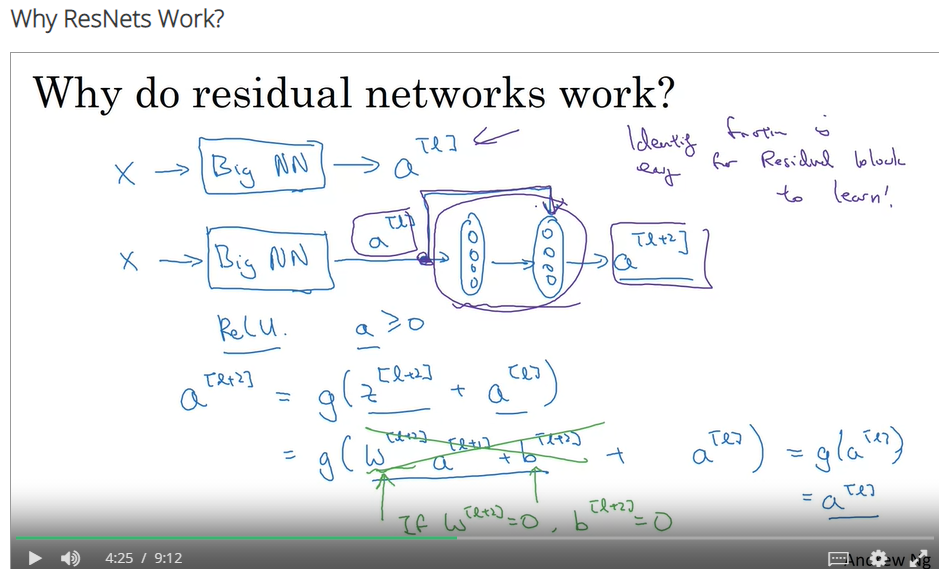 Why ResNets Work?
Why do residual networks work?
X → Big NN → a^[l]
Identity function is
easy for Residual block
to learn!
X → Big NN → a^[l] → → a^[l+2]
ReLU. a ≥ 0
a^[l+2] = g(z^[l+2] + a^[l])
= g(W^[l+2] a^[l+1] + b^[l+2] + a^[l]) = g(a^[l])
= a^[l]
If W^[l+2] = 0, b^[l+2] = 0
4:25 / 9:12
Andrew Ng